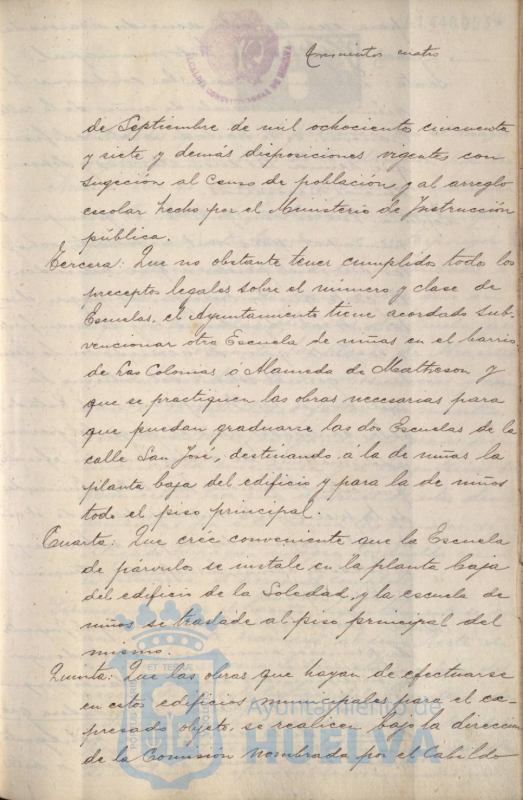 ALCALDIA CONSTITUCIONAL DE HUELVA
cuatro
de Septiembre de mil ochociento cincuenta
y siete y demás disposiciones vigentes con
sugeción al Censo de población y al arreglo
escolar hecho por el Ministerio de Instrucción
pública.
Tercera: Que no obstante tener cumplidos todo los
preceptos legales sobre el número y clase de
Escuelas, el Ayuntamiento tiene acordado sub-
vencionar otra Escuela de niñas en el barrio
de las Colonias ó Alameda de Matheson y
que se practiquen las obras necesarias para
que puedan graduarse las dos Escuelas de la
calle San José, destinando á la de niñas la
planta baja del edificio y para la de niños
todo el piso principal.
Cuarta: Que crée conveniente que la Escuela
de párvulos se instale en la planta baja
del edificio de la Soledad, y la escuela de
niños se traslade al piso principal del
mismo.
Quinta: Que las obras que hayan de efectuarse
en estos edificios municipales para el ex-
presado objeto, se realicen bajo la direccion
de la Comisión nombrada por el Cabildo
ET TERRAE
Ayuntamiento de
HUELVA